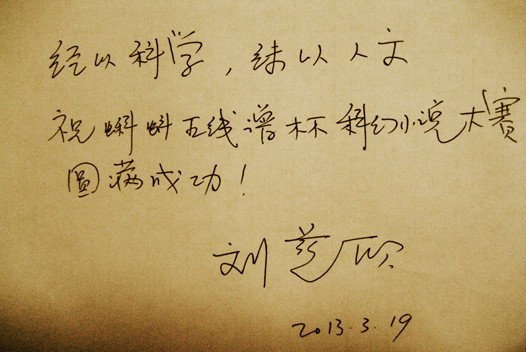 经以科学，纬以人文
祝蝌蝌五线谱杯科幻小说大赛
圆满成功！
刘慈欣
2013.3.19